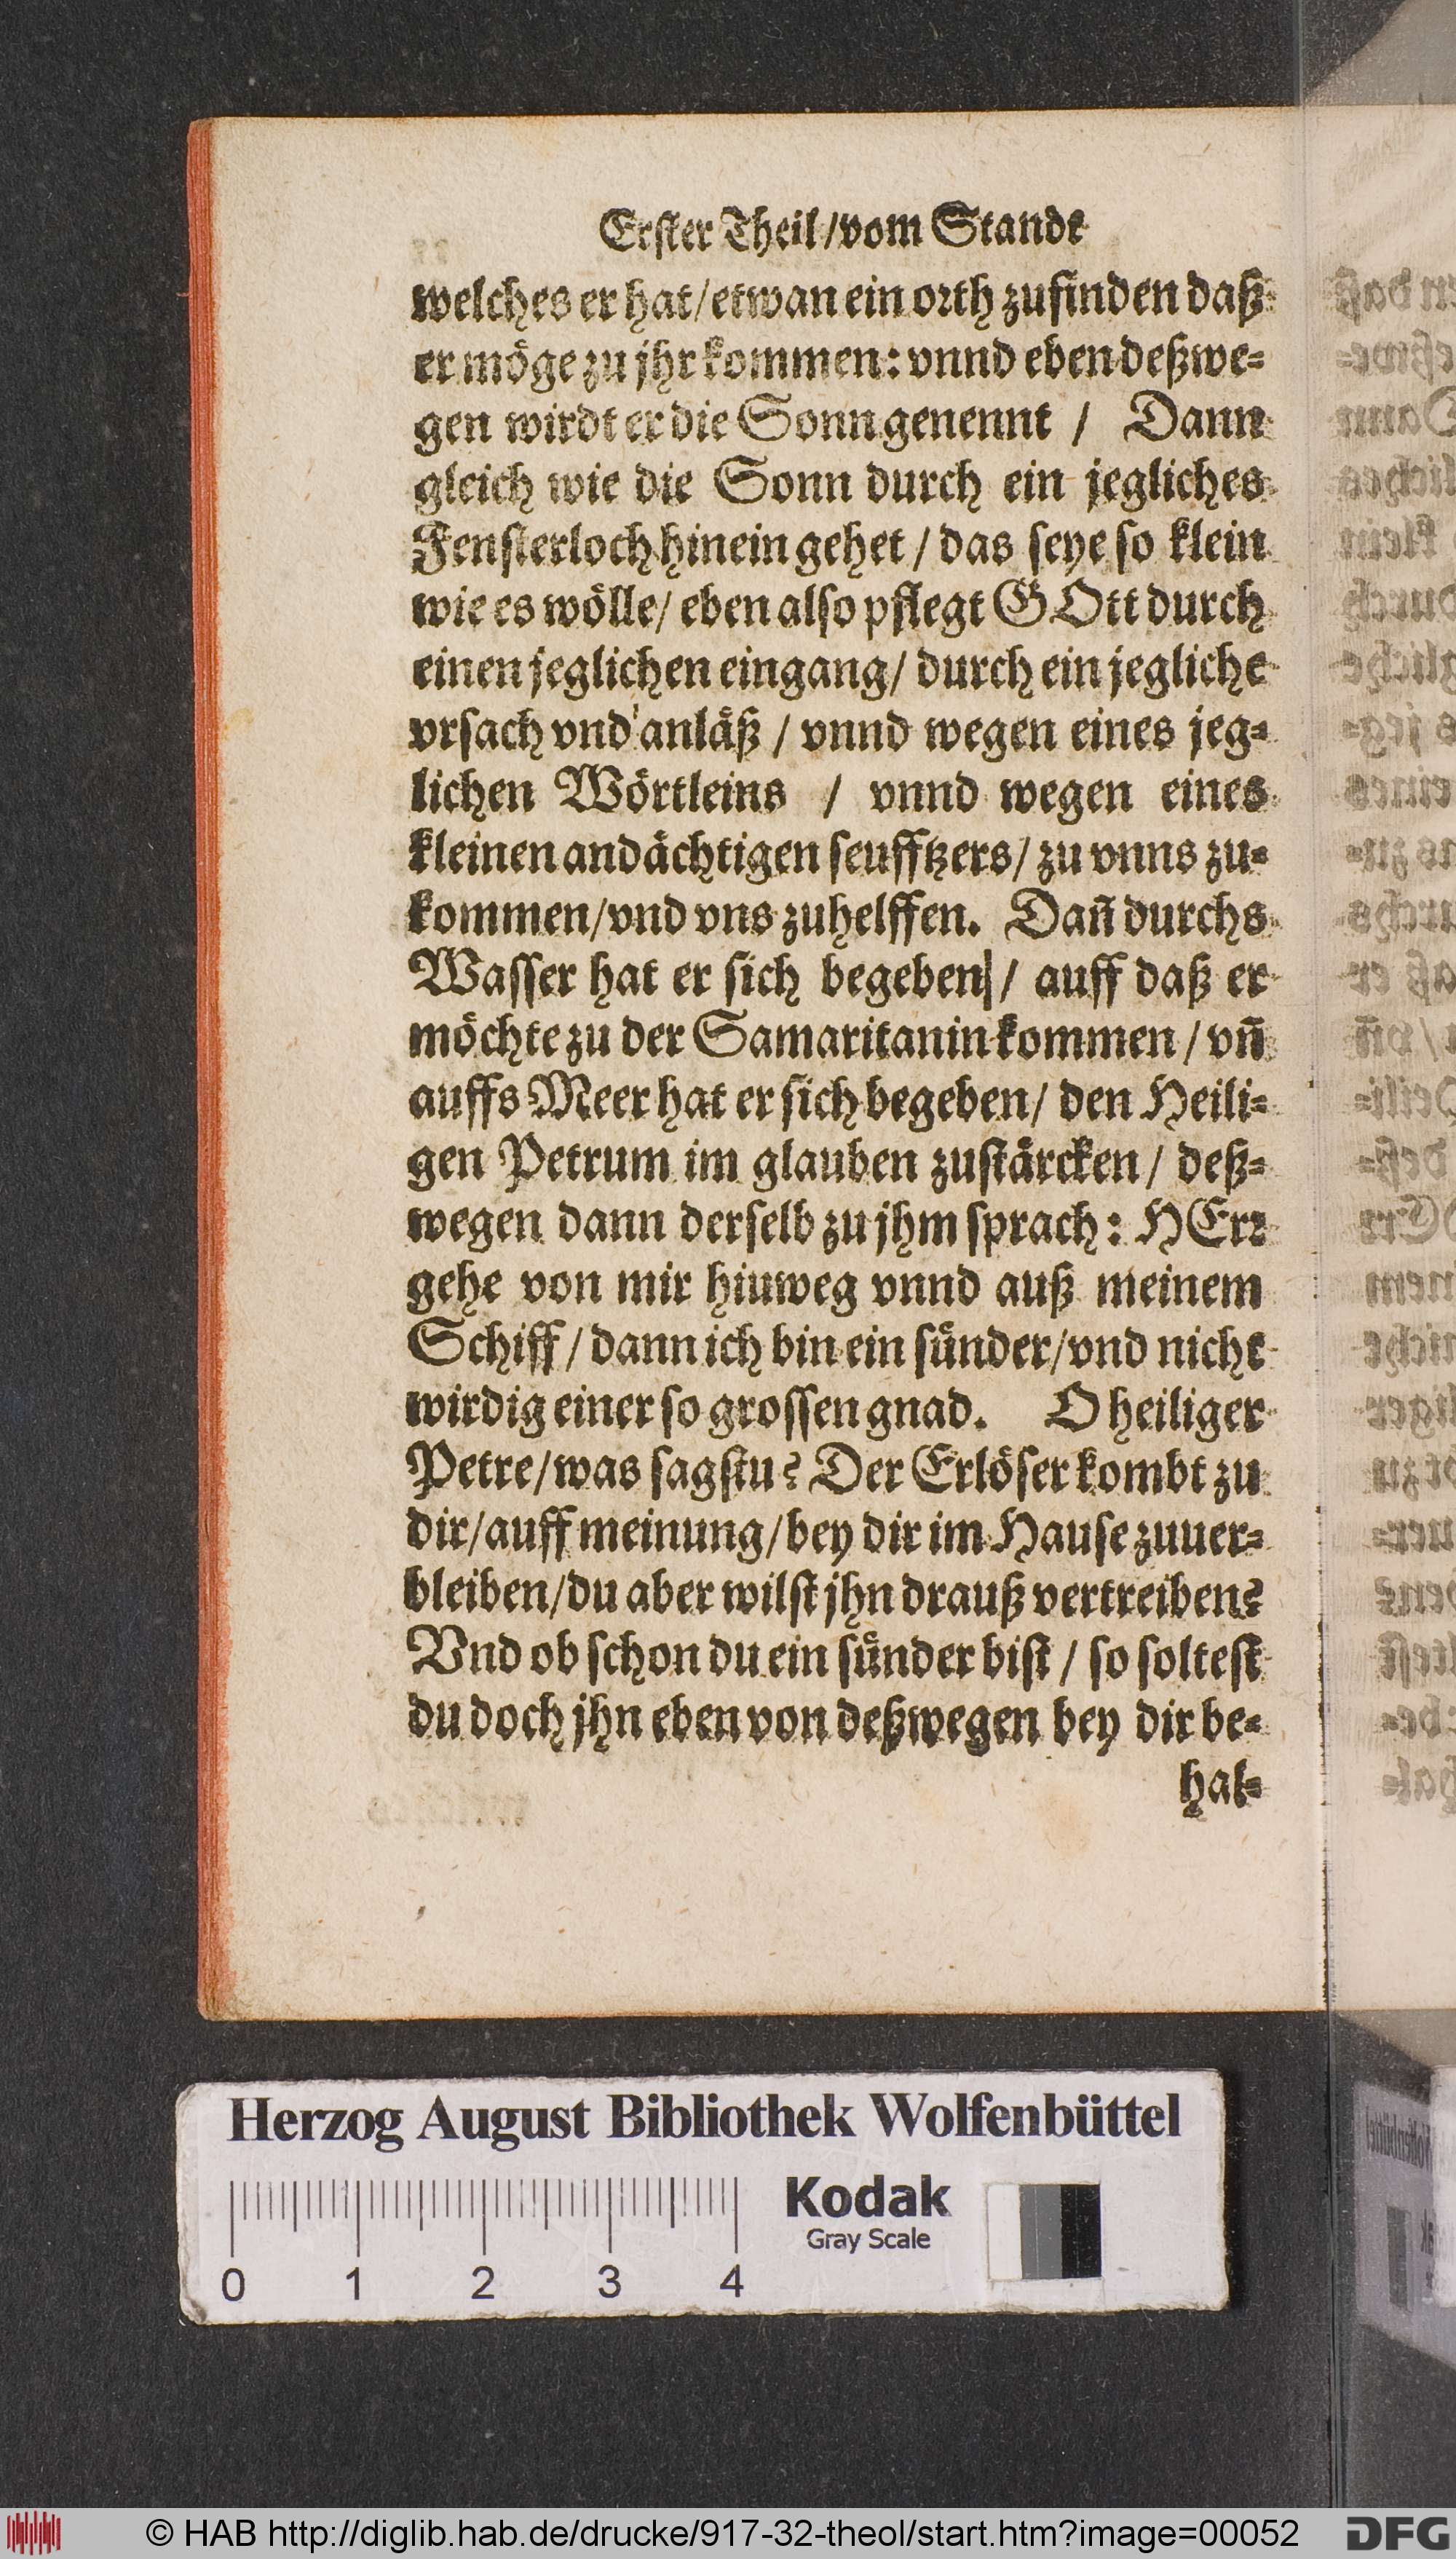 Erster Theil / vom Stande
welches er hat / etwan ein orth zufinden daß
er möge zu jhr kommen: vnnd eben deßwe-
gen wirdt er die Sonn genennt / Dann
gleich wie die Sonn durch ein jegliches
Fensterloch hinein gehet / das seye so klein
wie es wölle / eben also pflegt GOtt durch
einen jeglichen eingang / durch ein jegliche
vrsach vnd anläß / vnnd wegen eines jeg-
lichen Wörtleins / vnnd wegen eines
kleinen andächtigen seufftzers / zu vnns zu-
kommen / vnd vns zuhelffen. Dañ durchs
Wasser hat er sich begeben / auff daß er
möchte zu der Samaritanin kommen / vñ
auffs Meer hat er sich begeben / den Heili-
gen Petrum im glauben zustärcken / deß-
wegen dann derselb zu jhm sprach: HErr
gehe von mir hiuweg vnnd auß meinem
Schiff / dann ich bin ein sünder / vnd nicht
wirdig einer so grossen gnad. O heiliger
Petre / was sagstu? Der Erlöser kombt zu
dir / auff meinung / bey dir im Hause zuuer-
bleiben / du aber wilst jhn drauß vertreiben?
Vnd ob schon du ein sünder bist / so soltest
du doch jhn eben von deßwegen bey dir be-
hal-
Herzog August Bibliothek Wolfenbüttel
Kodak
Gray Scale
0 1 2 3 4
© HAB http://diglib.hab.de/drucke/917-32-theol/start.htm?image=00052
DFG